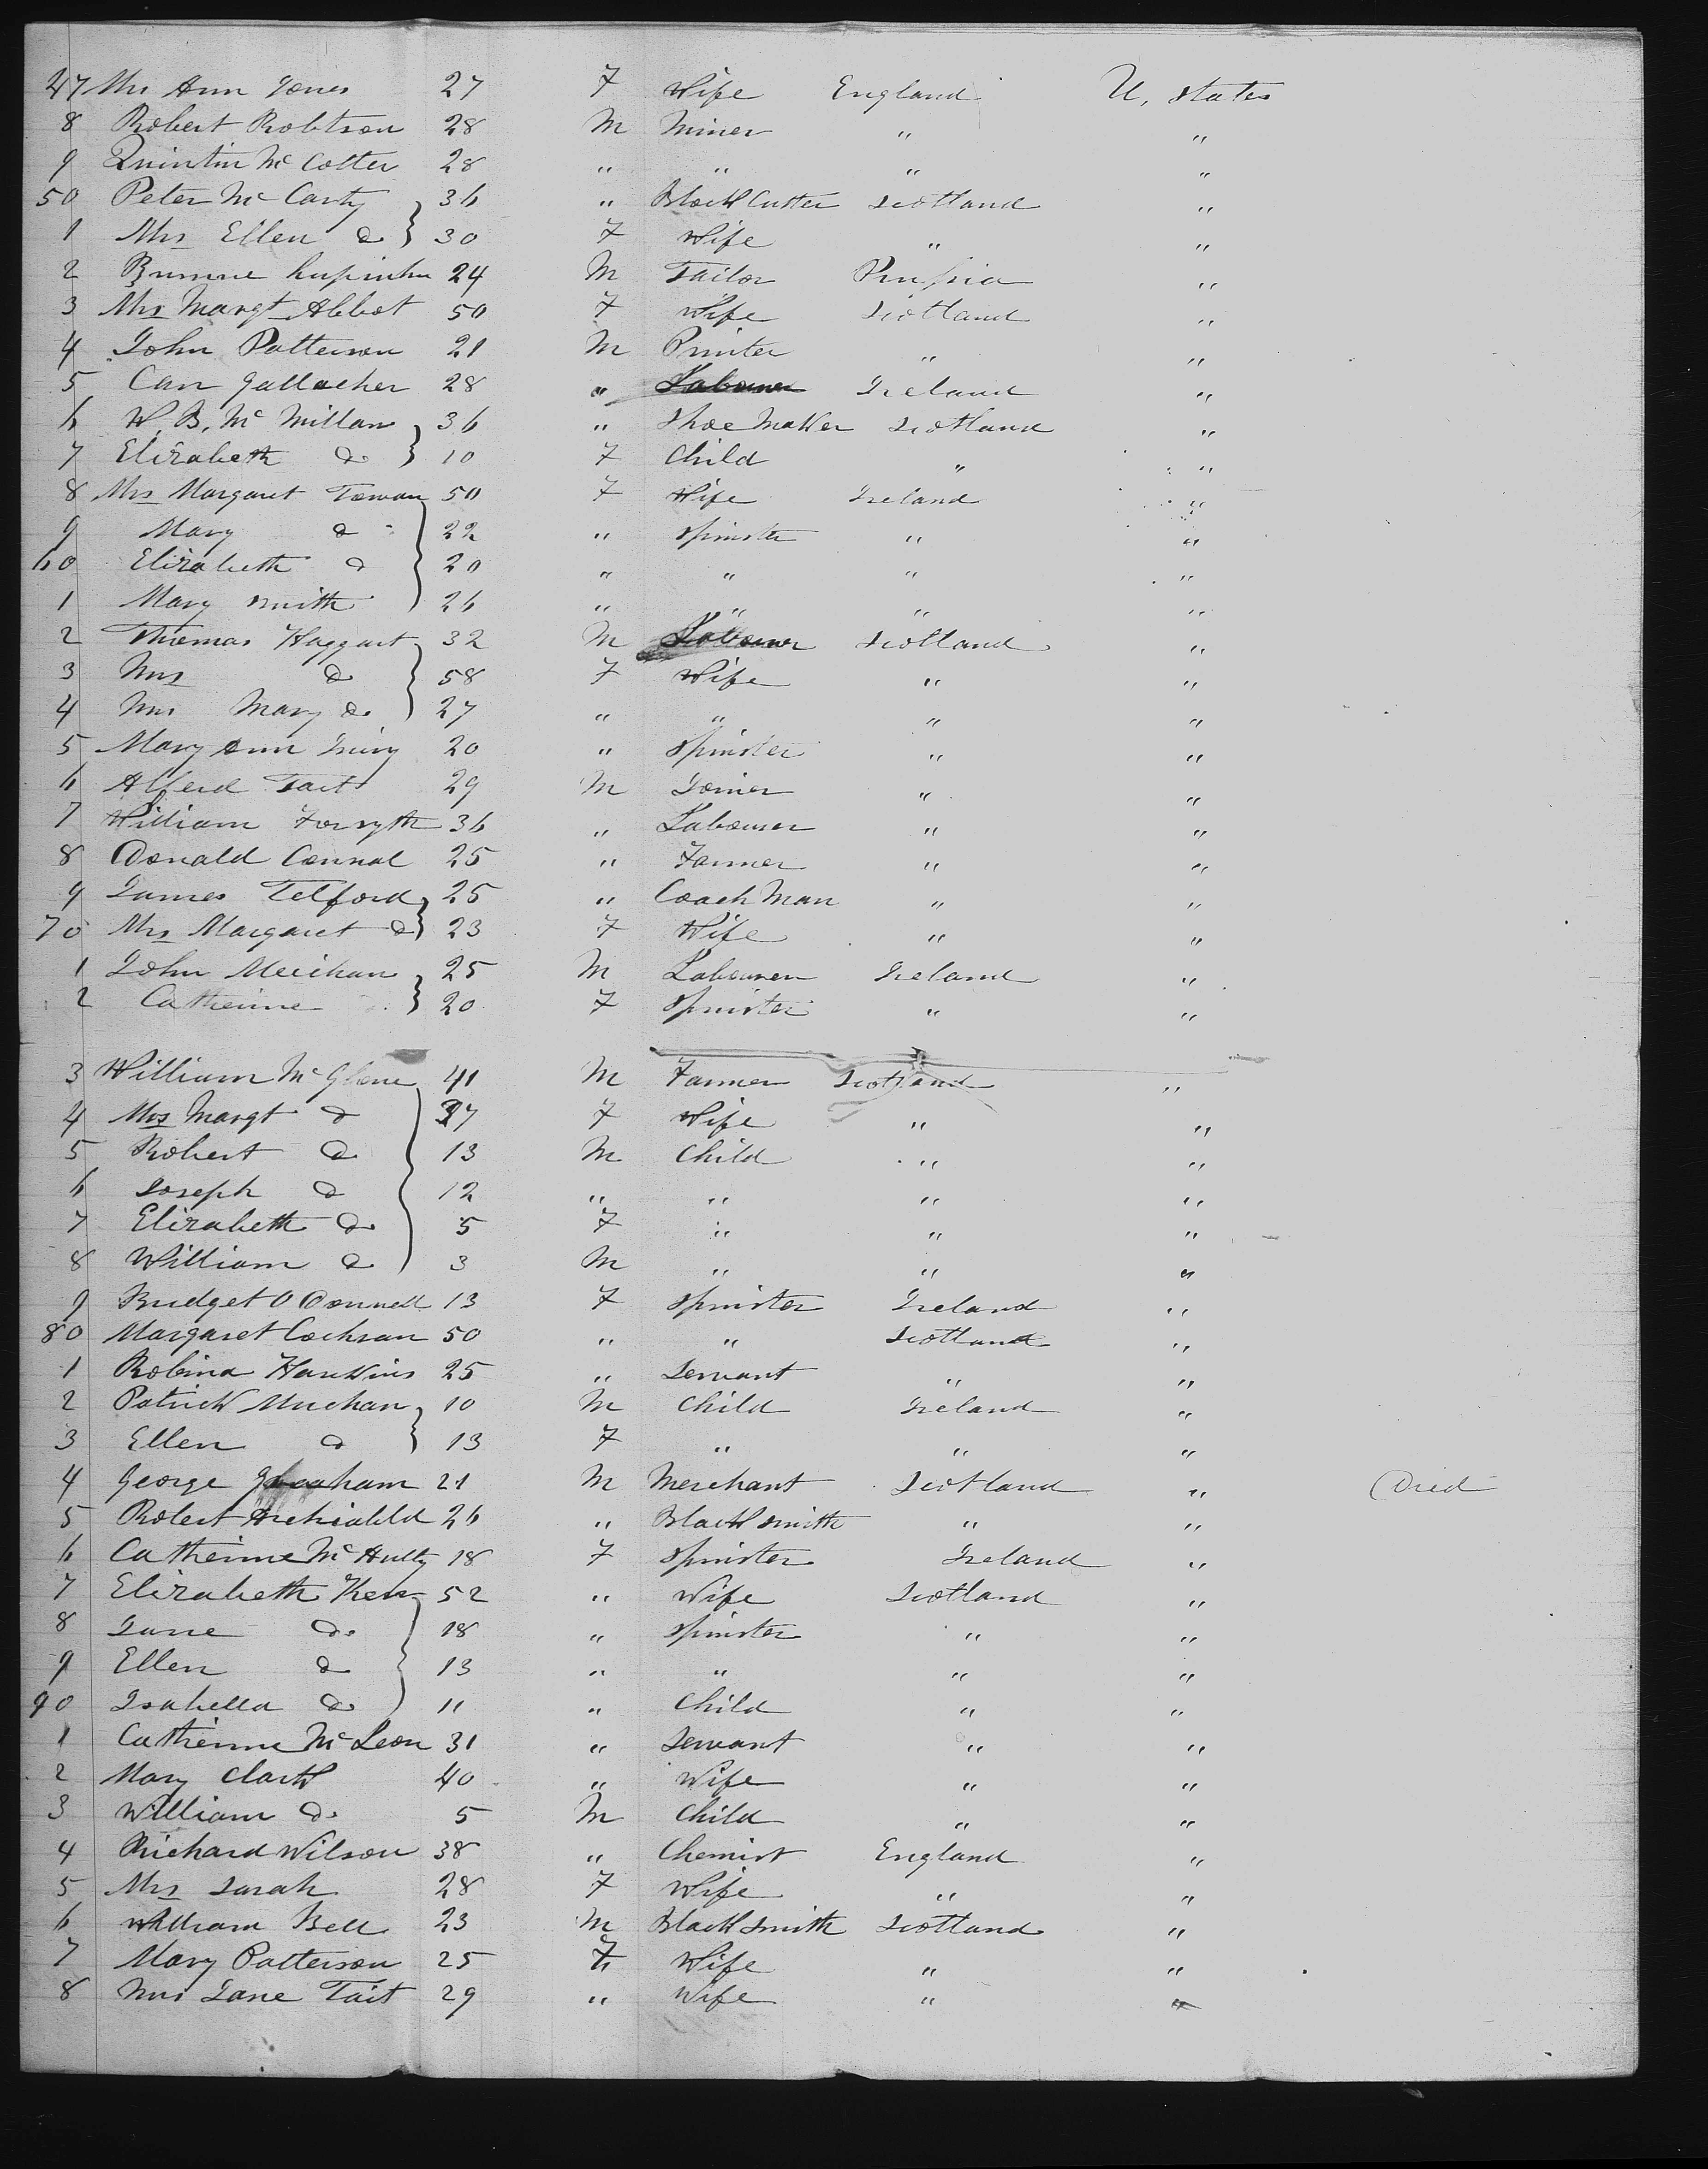 47 Mrs Ann Jones 27 F Wife England U, States
8 Robert Robtson 28 M Miner " "
9 Quintin Mc Cotter 28 " " " "
50 Peter Mc Carty } 36 " Block Cutter Scotland "
1 Mrs Ellen Do } 30 F Wife " "
2 24 M Tailor Prussia "
3 Mrs Margt Abbot 50 F Wife Scotland "
4 John Patterson 21 M Printer " "
5 Carr Gallacher 28 " Labourer Ireland "
6 W. B. Mc Millan } 36 " Shoe Maker Scotland "
7 Elizabeth Do } 10 F Child " "
8 Mrs Margaret 50 F Wife Ireland "
9 Mary Do 22 " Spinster " "
60 Elizabeth Do 20 " " " "
1 Mary Smith 26 " " " "
2 Thomas Haggart 32 M Labourer Scotland "
3 Mrs Do 58 F Wife " "
4 Mrs Mary Do 27 " " " "
5 Mary Ann 20 " Spinster " "
6 Alferd Tait 29 M Joiner " "
7 William Forsyth 36 " Labourer " "
8 Donald Connal 25 " Farmer " "
9 James Telford } 25 " Coach Man " "
70 Mrs Margaret Do } 23 F Wife " "
1 John Meichan } 25 M Labourer Ireland "
2 Catherine } 20 F Spinster " "
3 William Mc Glone 41 M Farmer Scotland "
4 Mrs Margt Do 37 F Wife " "
5 Robert Do 13 M Child " "
6 Joseph Do 12 " " " "
7 Elizabeth Do 5 F " " "
8 William Do 3 M " " "
9 Bridget O Donnell 13 F Spinster Ireland "
80 Margaret Cochran 50 " " Scotland "
1 Robina Hawkins 25 " Servant " "
2 Patrick Muchan } 10 M Child Ireland "
3 Ellen Do } 13 F " " "
4 George Graham 21 M Merchant Scotland " Died
5 Robert Archiabld 26 " Black Smith " "
6 Catherine Mc Anlty 18 F Spinster Ireland "
7 Elizabeth Kerr 52 " Wife Scotland "
8 Jane Do 18 " Spinster " "
9 Ellen Do 13 " " " "
90 Isabella Do 11 " Child " "
1 Catherine Mc Leon 31 " Servant " "
2 Mary Clark 40 " Wife " "
3 William Do 5 M Child " "
4 Richard Wilson 38 " Chemist England "
5 Mrs Sarah 28 F Wife " "
6 William Bell 23 M Black Smith Scotland "
7 Mary Patterson 25 F Wife " "
8 Mrs Jane Tait 29 " Wife " "